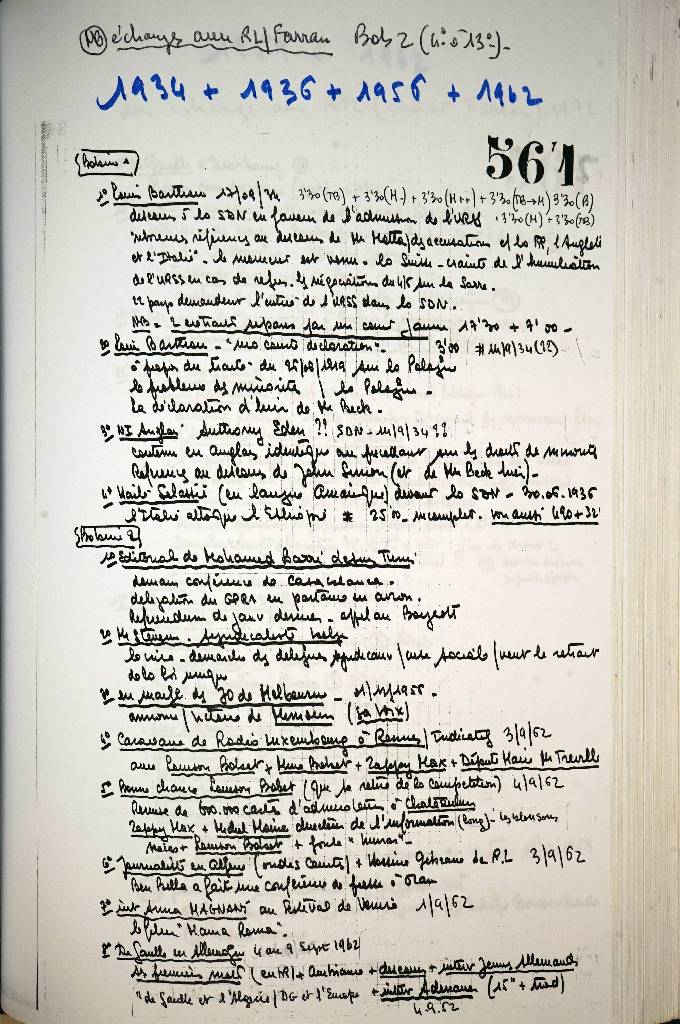 NB échange avec RL/Farran Bob 2 (4° à 13°)-
1934 + 1936 + 1956 + 1962
561
Bobine 1
1° Louis Barthou 17/09/34 3'30 (TB) + 3'30 (H-) + 3'30 (H++) + 3'30 (TB→H) 3'30 (B)
discours à la SDN en faveur de l'admission de l'URSS + 3'30 (H) + 3'30 (TB)
références au discours de Mr Motta/
et l'Italie". le moment est venu - la Suisse - crainte de l'humiliation
de l'URSS en cas de refus. négociations du sur la Sarre.
22 pays demandent l'entrée de l'URSS dans la SDN.
NB = 2 extraits séparés par un jaune 17'30 + 7'00 -
2° Louis Barthou - "ma courte déclaration". 3'00 # 14/9/34 (??)
à propos du traité du 28/06/1919 sur la Pologne
le problème des minorités / la Pologne -
La déclaration d'hier de Mr Beck.
3° Anglais Anthony Eden ?? SDN - 14/9/34 ??
contenu en Anglais identique au précédent sur les droits de minorités
Référence au discours de John Simon (et de Mr Beck hier)-
4° Hailé Sélassié (en langue Amharique) devant la SDN - 30.06.1936
l'Italie attaque l'Ethiopie # 25'00 - incomplet. voir aussi 490+32'
Bobine 2
1° Editorial de Mohamed depuis Tunis
demain conférence de Casablanca.
délégation du GPRA en partance en avion.
Referendum de janv dernier - appel au Boycott
2° Mr Stevens. syndicaliste belge
la crise - demande des délégués syndicaux / / veut le retrait
de la loi unique
3° en marge des JO de Melbourne - 1/12/1956 -
annonce / victoire de Mimoun (sa voix)
4° Caravane de Radio Luxembourg à Rennes / Indicatif 3/9/62
avec Louison Bobet + Mme Bobet + Zappy Max + Député Maire Mr
5° Bonne chance Louison Bobet (qui se retire de la compétition) 4/9/62
Remise de 600.000 cartes d'admirateurs à
Zappy Max + Michel directeur de l'information (long) - les blousons
noirs + Louison Bobet + foule "hurras"-
6° Journaliste en Algérie (ondes courtes) + Hossine de R.L 3/9/62
Ben Bella a fait une conférence de presse à Oran
7° int Anna MAGNANI au Festival de Venise 1/9/62
le film "Mama Roma".
8° De Gaulle en Allemagne 4 au 9 Sept 1962
ses premiers mots + Ambiance + discours + interv Jeunes Allemands
"de Gaulle et l'Algérie / DG et l'Europe + interv Adenauer (15" + trad)
4.9.62